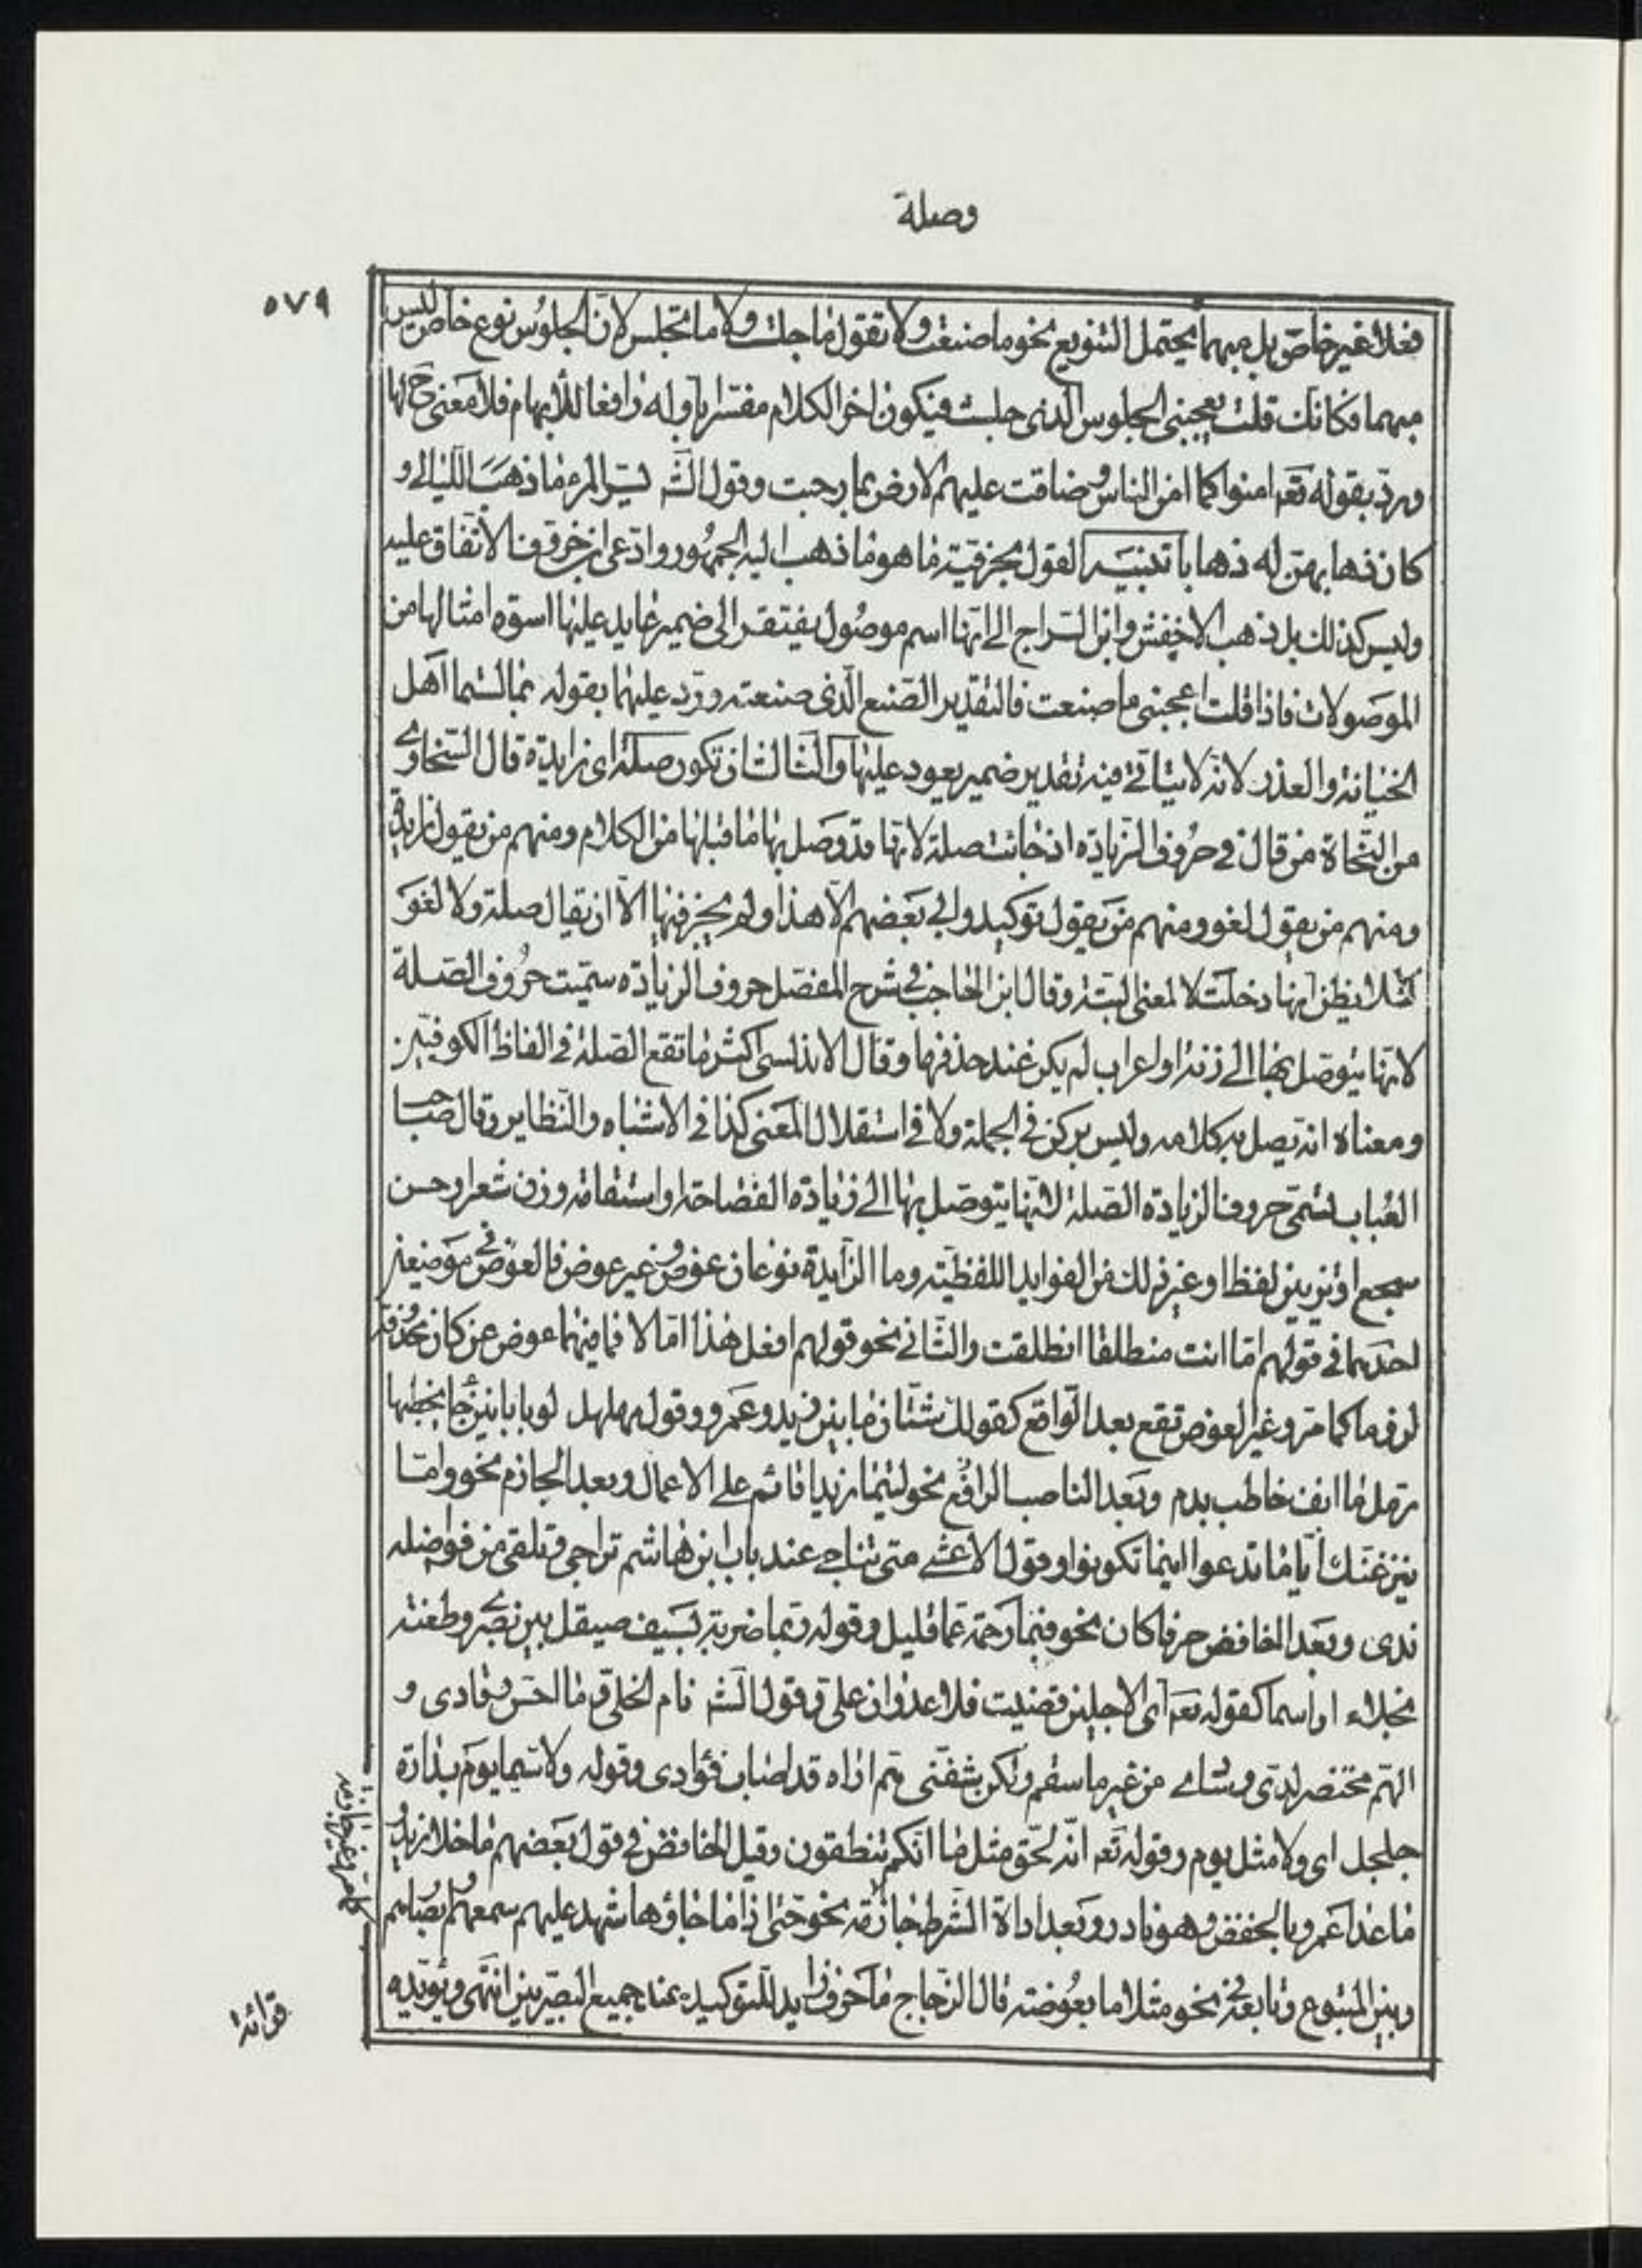 وصلة
٥٧٩
فعلا غير خاص بل مبهما يحتمل التنويع نحو ما صنعت ولا تقول ما جلست ولا ما تجلس لان الجلوس نوع خاص ليس
مبهما فكانك قلت يعجبنى الجلوس الذى جلست فيكون اخر الكلام مفسرا باوله رافعا للابهام فلا معنى ح لها
ويرد بقوله تعه امنوا كما امن الناس وضاقت عليهم الارض بما رحبت وقول الشه يسر المرء ما ذهب الليالى و
كان ذهابهن له ذهابا تنبيه القول بحرفية ما هو ما ذهب اليه الجمهور وادعى ابن خروف الاتفاق عليه
وليس كذلك بل ذهب الاخفش وابن السراج الى انها اسم موصول يفتقر الى ضمير عايد عليها اسوة امثالها من
الموصولات فاذا قلت اعجبنى ما صنعت فالتقدير الصنع الذى صنعته ورد عليهما بقوله بما لستما اهل
الخيانة والغدر لانه لا يتاتى فيه تقدير ضمير يعود عليها والثالث ان تكون صلة اى زايدة قال السخاوى
من النحاة من قال فى حروف الزيادة اذ جائت صلة لانها قد وصل بها ما قبلها من الكلام ومنهم من يقول زايدة
ومنهم من يقول لغو ومنهم من يقول توكيد وابى بعضهم الا هذا ولم يجز فيها الا ان يقال صلة ولا لغو
لئلا يظن انها دخلت لا لمعنى البتة وقال ابن الحاجب فى شرح المفصل حروف الزيادة سميت حروف الصلة
لانها يتوصل بها الى زنة او اعراب لم يكن عند حذفها وقال الاندلسى اكثر ما تقع الصلة فى الفاظ الكوفيين
ومعناه انه يصل به كلامه وليس بركن فى الجملة ولا فى استقلال المعنى كذا فى الاشباه والنظاير وقال صاحب
العباب لتسمى حروف الزيادة الصلة لانها يتوصل بها الى زيادة الفصاحة او استقامة وزن شعر او حسن
سجع او تزيين لفظ او غير ذلك من الفوايد اللفظية وما الزايدة نوعان عوض وغير عوض فالعوض فى موضعين
احدهما فى قولهم اما انت منطلقا انطلقت والثانى نحو قولهم افعل هذا اما لا فما فيهما عوض عن كان محذوفة
لزوما كما مر وغير العوض تقع بعد الرافع كقولك شتان ما بين زيد وعمرو وقول مهلهل لو بابانين جا يخطبها
رمل ما انف خاطب بدم وبعد الناصب الرافع نحو ليتما زيدا قائم على الاعمال وبعد الجازم نحو واما
ينزغنك ايا ما تدعوا اينما تكونوا وقول الاعشى متى تناجى عند باب ابن هاشم تراحى وتلقى من فواضله
ندى وبعد الخافض حرفا كان نحو فبما رحمة عما قليل وقوله ربما ضربة بسيف صيقل بين بصرى وطعنة
نجلاء او اسما كقوله تعه اى الاجلين قضيت فلا عدوان على وقول الشه نام الخلى وما احس رقادى و
الهم محتضر لدى وسادى من غير ما سقم ولكن شفنى هم اراه قد اصاب فؤادى وقوله ولا سيما يوم بدارة
جلجل اى ولا مثل يوم وقوله تعه انه لحق مثل ما انكم تنطقون وقبل الخافض فى قول بعضهم ما خلا زيد
ما عدا عمرو بالخفض وهو نادر وبعد اداة الشرط جازمة نحو حتى اذا ما جاؤها شهد عليهم سمعهم وابصارهم
وبين المتبوع وتابعه نحو مثلا ما بعوضة قال الزجاج ما حرف زايد للتوكيد عند جميع البصريين انتهى ويؤيده
قرائة